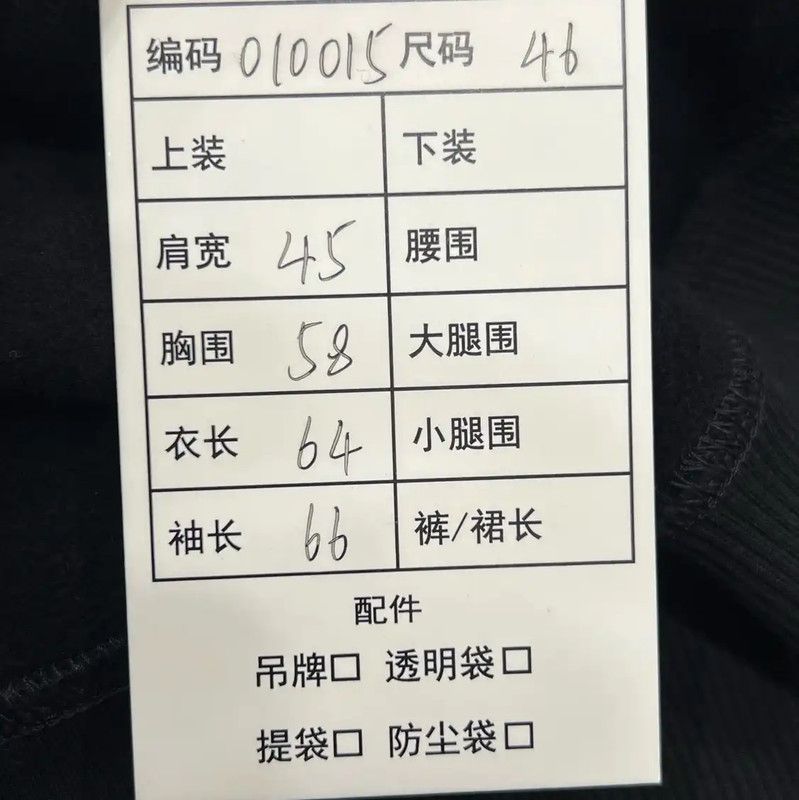 编码 010015 尺码 46
上装 下装
肩宽 45 腰围
胸围 58 大腿围
衣长 64 小腿围
袖长 66 裤/裙长
配件
吊牌□ 透明袋□
提袋□ 防尘袋□